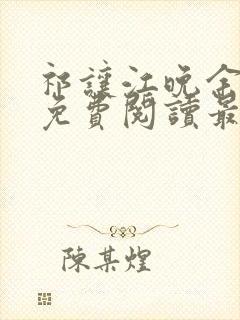 祁讓江晚余
免費閱讀最
陳某煌